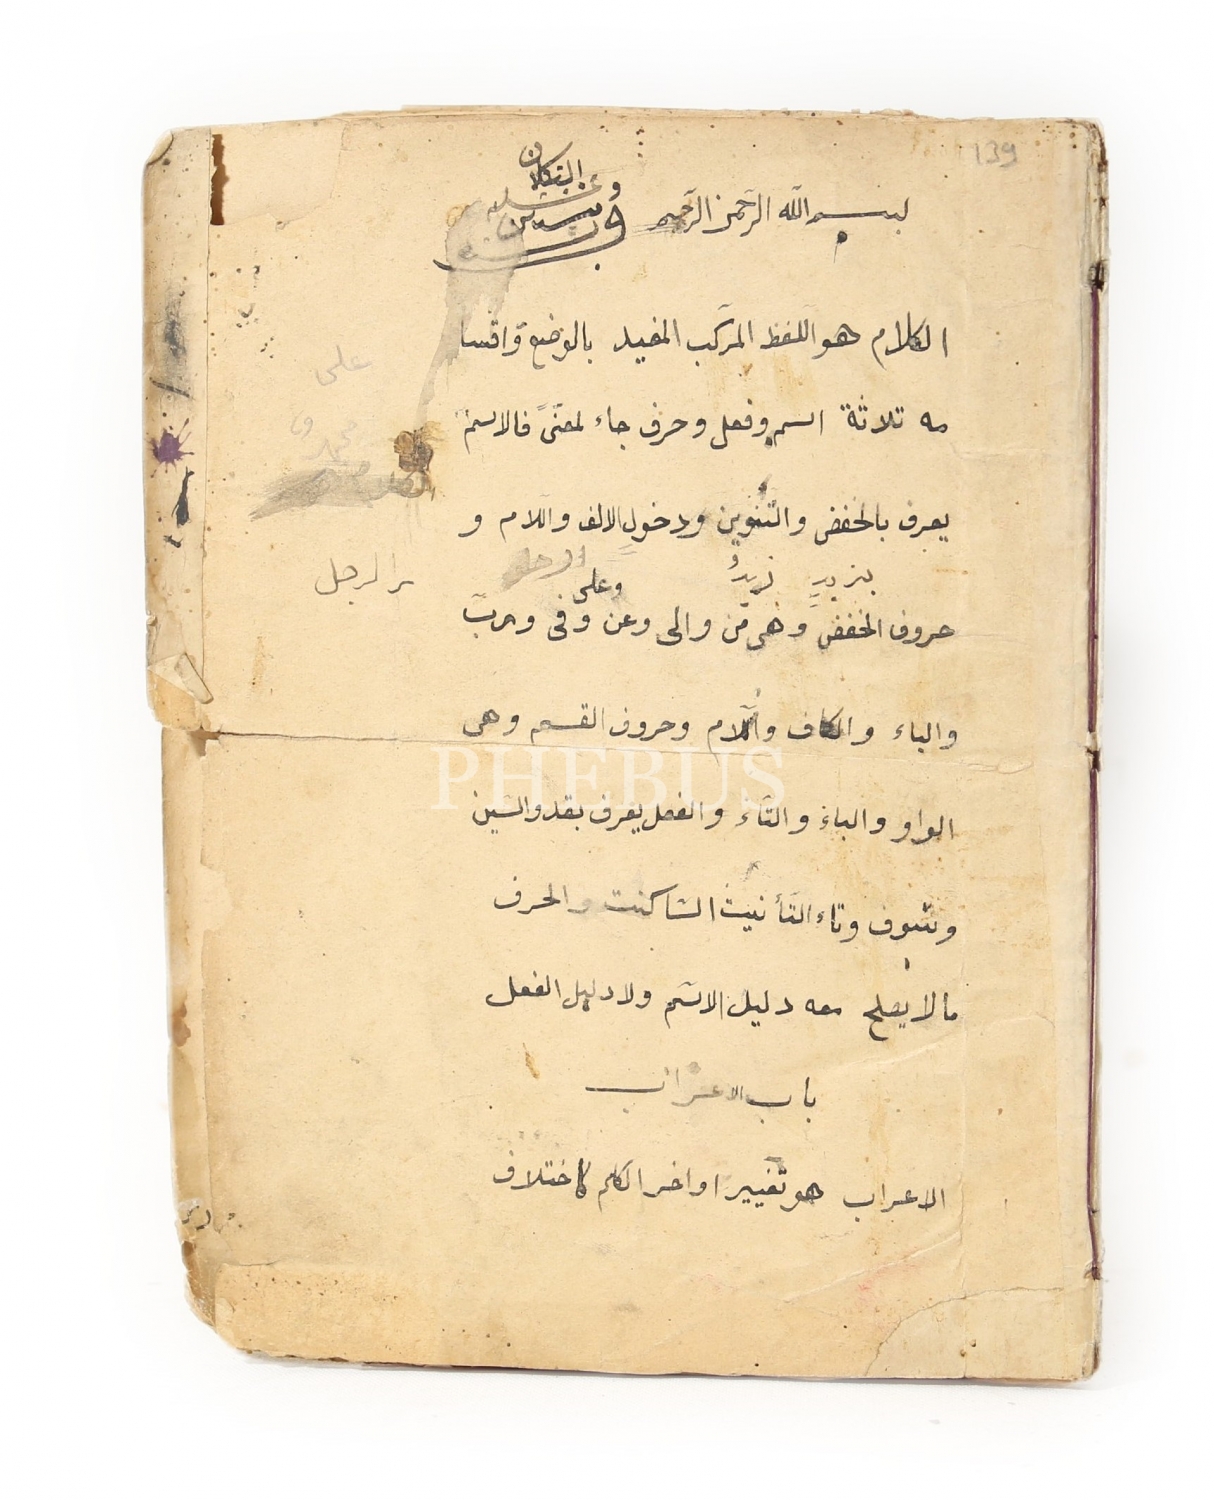 139
بسم الله الرحمن الرحيم وبه نستعين وعليه التكلان
الكلام هو اللفظ المركب المفيد بالوضع واقسا
مه ثلاثة اسم وفعل وحرف جاء لمعنًى فالاسم
يعرف بالخفض والتنوين ودخول الالف واللام و
بزيدٍ زيدٌ
بالرجل
وعلى
حروف الخفض وهى من والى وعن وفى وربّ
والباء والكاف واللام وحروف القسم وهى
الواو والباء والتاء والفعل يعرف بقد والسين
وسوف وتاء التأنيث الساكنت والحرف
مالا يصلح معه دليل الاسم ولا دليل الفعل
باب الاعراب
الاعراب هو تغيير اواخر الكلم لاختلاف
على
محمد
PHEBUS